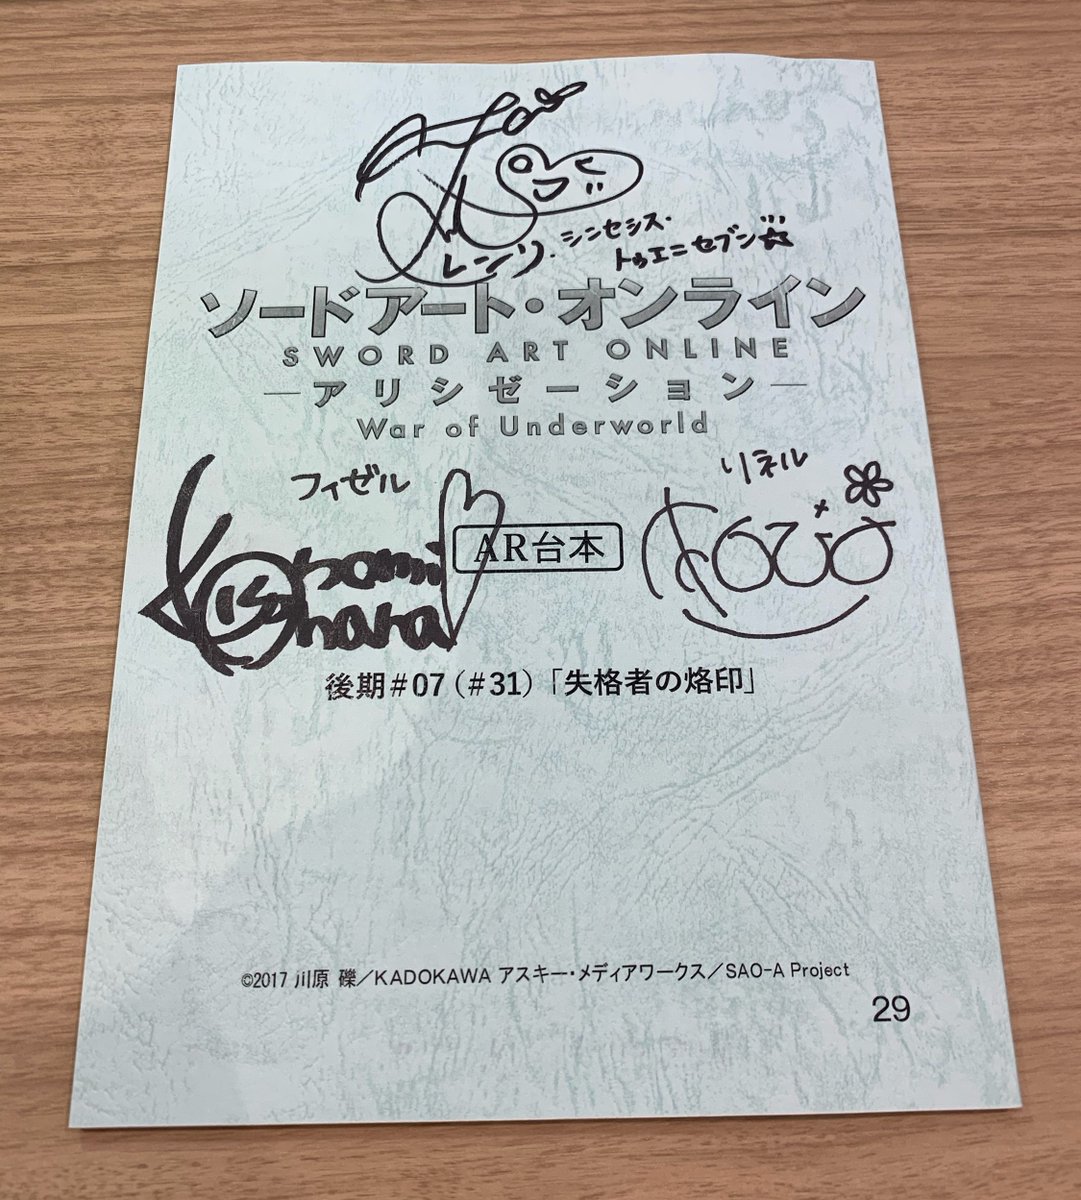 レンリ・シンセシス・
トゥエニセブン☆
ソードアート・オンライン
SWORD ART ONLINE
―アリシゼーション―
War of Underworld
フィゼル
リネル
Konomi
Kohara
AR台本
後期#07(#31)「失格者の烙印」
©2017 川原 礫／KADOKAWA アスキー・メディアワークス／SAO-A Project
29